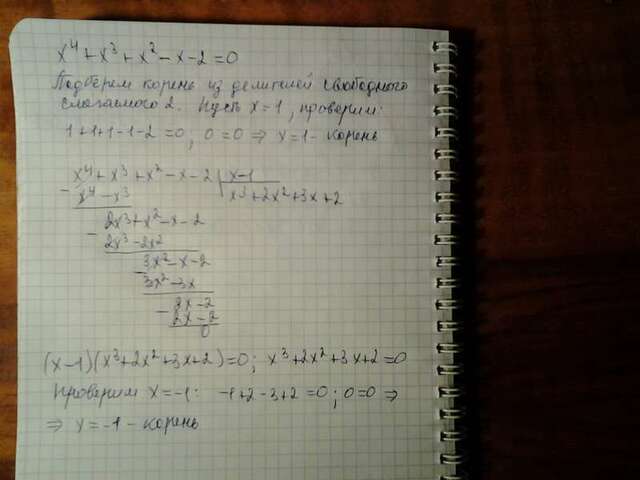 x⁴+x³+x²-x-2=0
Подберем корень из делителей свободного
слагаемого 2. Пусть x=1, проверим:
1+1+1-1-2=0, 0=0 ⇒ x=1- корень
x⁴+x³+x²-x-2 | x-1
- x⁴-x³ | x³+2x²+3x+2
2x³+x²-x-2
- 2x³-2x²
3x²-x-2
- 3x²-3x
2x-2
- 2x-2
0
(x-1)(x³+2x²+3x+2)=0; x³+2x²+3x+2=0
Проверим x=-1: -1+2-3+2=0; 0=0 ⇒
⇒ x=-1 - корень